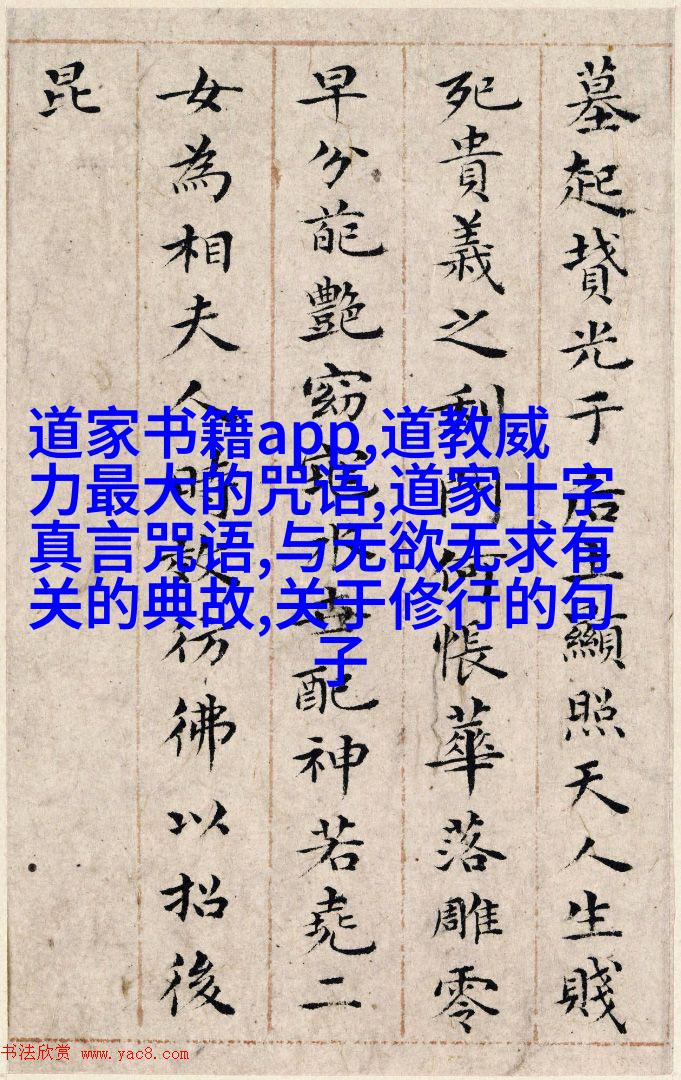 墓起墳光于后土顯照天人生賤
死貴義之利門何悵華落雕零
早分葩艷窈窕永世配神若堯二
女為相夫人時效彷彿以招後
昆
道家书籍app,道教威
力最大的咒语,道家十字
真言咒语,与无欲无求有
关的典故,关于修行的句
子
书法欣赏 www.yac8.com